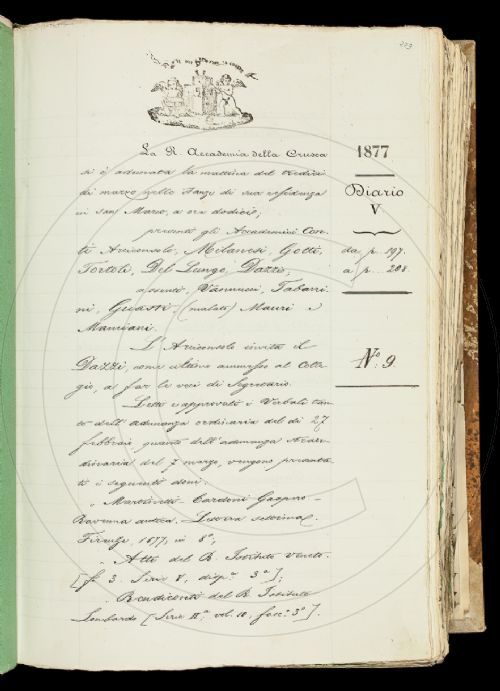 203
La R. Accademia della Crusca
si è adunata la mattina del tredici
di marzo nelle stanze di sua residenza
in San Marco, a ora dodici;
presenti gli Accademici Con-
ti Arciconsolo, Milanesi, Gotti,
Tortoli, Del Lungo, Dazzi;
assenti Vannucci, Tabarri-
ni, Guasti (malati) Mauri e
Mamiani.
L'Arciconsolo invita il
Dazzi, come ultimo ammesso al Colle-
gio, a far le veci di Segretario.
Letti e approvati i Verbali tan-
to dell'adunanza ordinaria del dì 27
febbraio quanto dell'adunanza straor-
dinaria del 7 marzo, vengono presenta-
ti i seguenti doni.
Martinetti Cardoni Gasparo –
Ravenna antica. Lettera settima.
Firenze, 1877, in 8°;
Atti del R. Istituto Veneto.
[f. 3. Serie V, disp.a 3a];
Rendiconti del R. Istituto
Lombardo [Serie IIa, vol. 10, fasc. 3°].
1877
Diario
V
da p. 197.
a p. 208.
N.° 9.